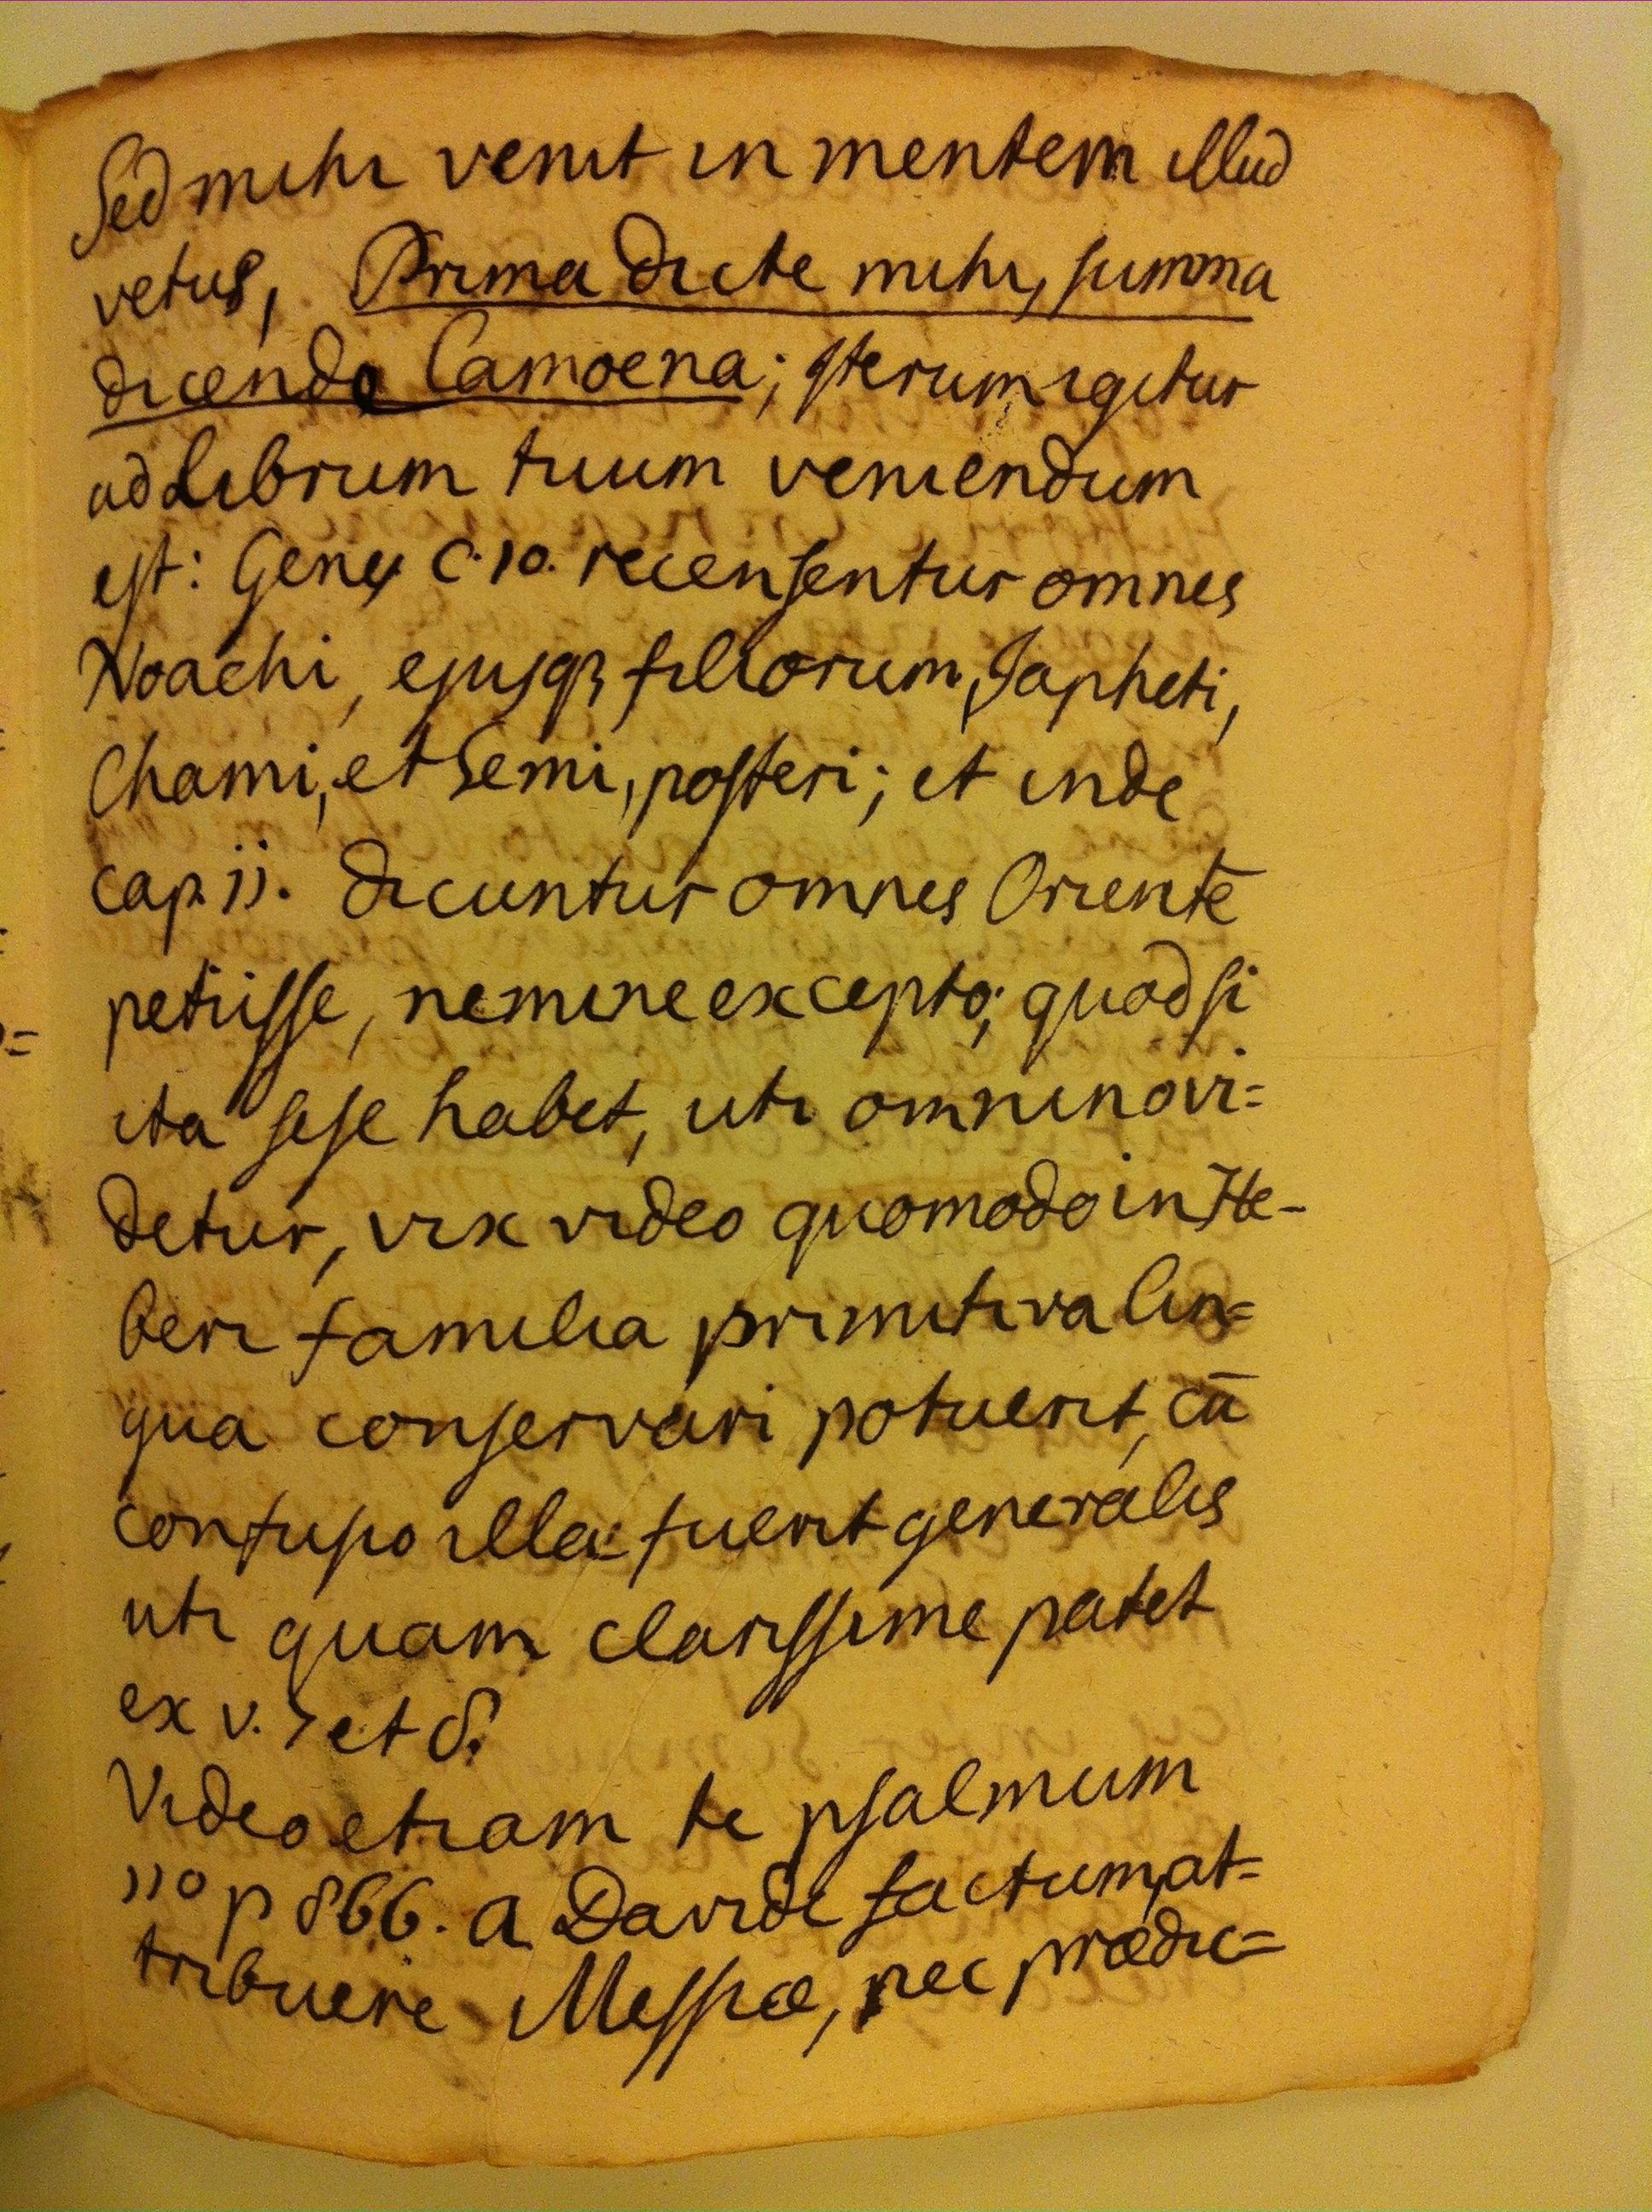 Sed mihi venit in mentem illud
vetus, Prima dicte mihi, summa
dicende Camoena; Iterum igitur
ad Librum tuum veniendum
est: Genes c. 10. recensentur omnes
Noachi, ejusq3 filiorum, Japheti,
Chami, et Semi, posteri; et inde
cap. 11. dicuntur omnes Orientē
petiisse, nemine excepto; quod si
ita sese habet, uti omnino vi=
detur, vix video quomodo in He-
beri familia primitiva lin=
gua conservari potuerit, cū
confusio illa fuerit generalis
uti quam clarissime patet
ex v. 7 et 8.
Video etiam te psalmum
110 p 866. a Davide factum, at=
tribuere Messiæ, nec prædic=